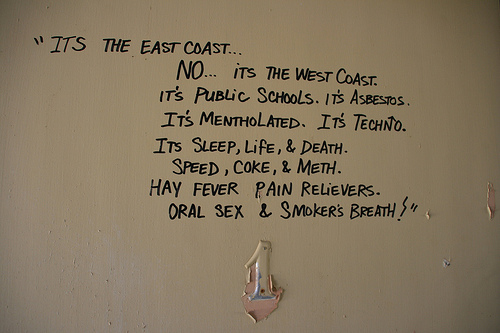 "ITS THE EAST COAST...
NO... ITS THE WEST COAST.
IT'S PUBLIC SCHOOLS. IT'S ASBESTOS.
IT'S MENTHOLATED. IT'S TECHNO.
ITS SLEEP, LIFE, & DEATH.
SPEED, COKE, & METH.
HAY FEVER PAIN RELIEVERS.
ORAL SEX & SMOKER'S BREATH!"
1